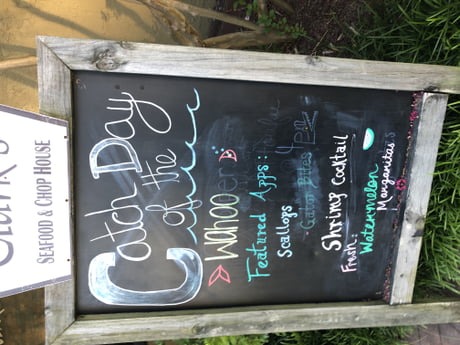 Clark's
SEAFOOD & CHOP HOUSE
Catch of the Day
Wahoo
Featured Apps:
Scallops
Gator Bites
Shrimp Cocktail
Fresh:
Watermelon
Margaritas